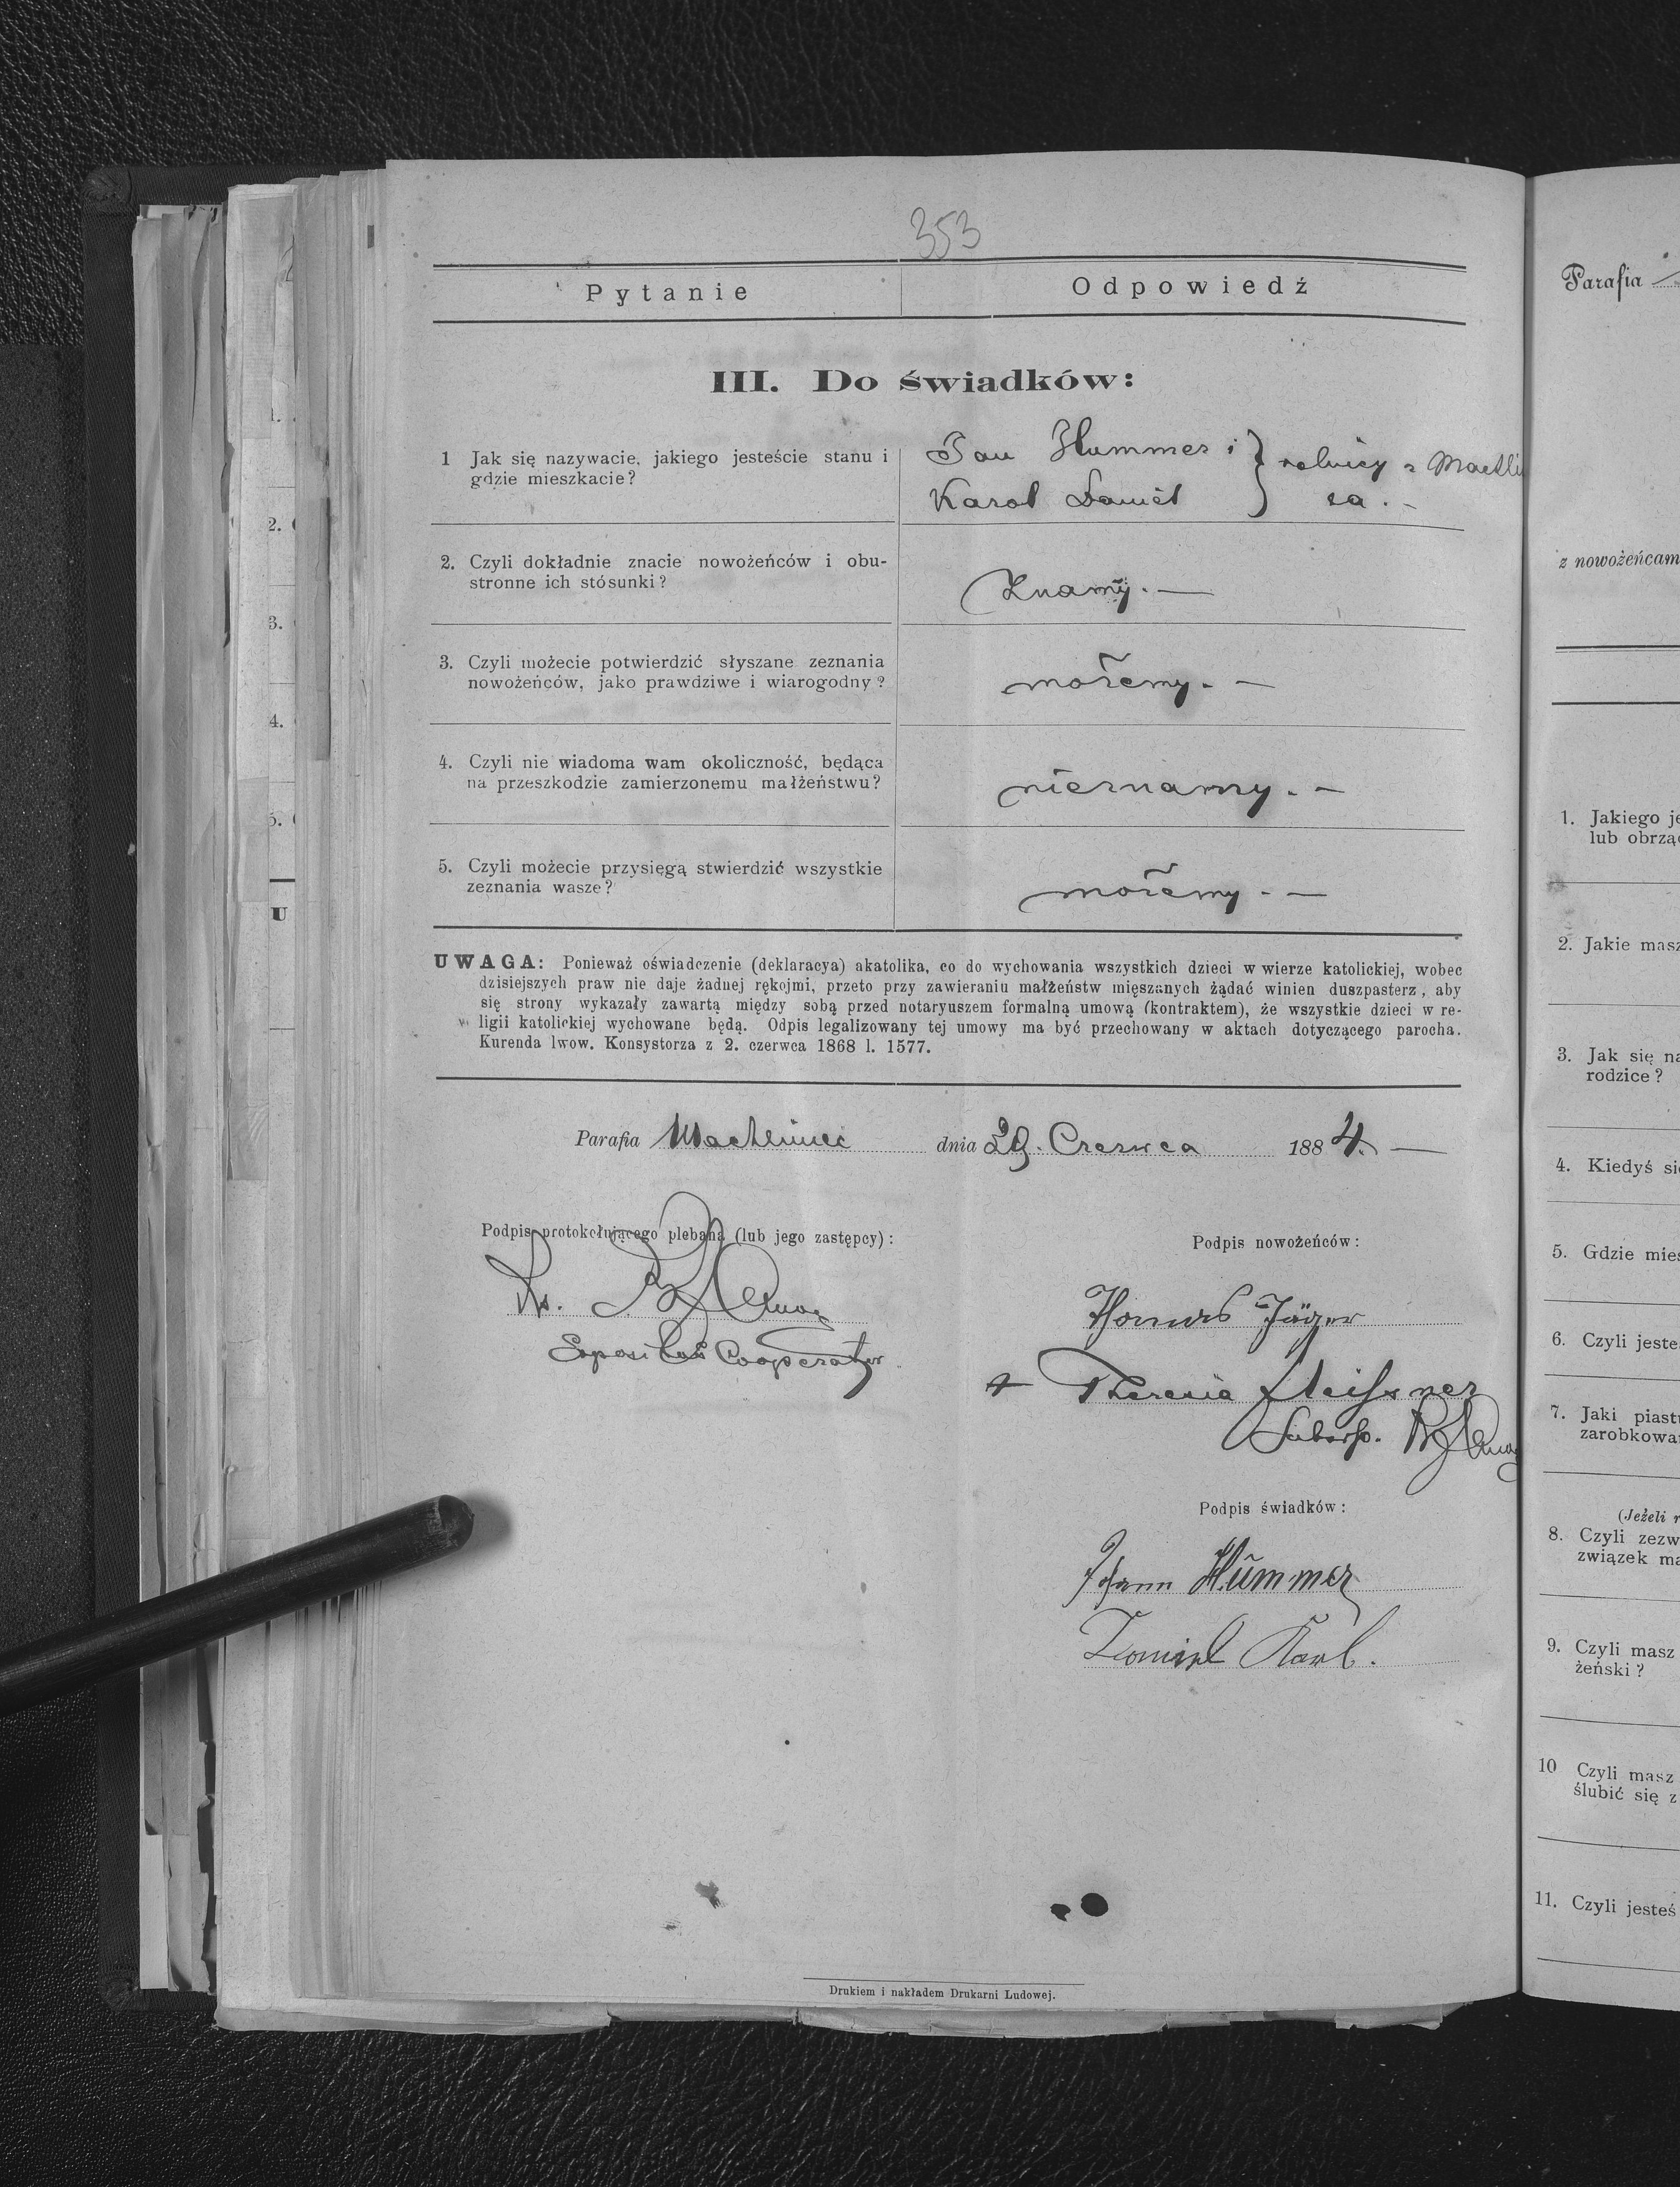 353
Pytanie
Odpowiedź
III. Do świadków:
1 Jak się nazywacie, jakiego jesteście stanu i
gdzie mieszkacie?
Jan Hummer i
Karol Daniel
} rolnicy z Machli
2. Czyli dokładnie znacie nowożeńców i obu-
stronne ich stósunki?
Znamy. —
3. Czyli możecie potwierdzić słyszane zeznania
nowożeńców, jako prawdziwe i wiarogodny?
możemy. —
4. Czyli nie wiadoma wam okoliczność, będąca
na przeszkodzie zamierzonemu małżeństwu?
nieznamy. —
5. Czyli możecie przysięgą stwierdzić wszystkie
zeznania wasze?
możemy. —
UWAGA: Ponieważ oświadczenie (deklaracya) akatolika, co do wychowania wszystkich dzieci w wierze katolickiej, wobec
dzisiejszych praw nie daje żadnej rękojmi, przeto przy zawieraniu małżeństw mięszanych żądać winien duszpasterz, aby
się strony wykazały zawartą między sobą przed notaryuszem formalną umową (kontraktem), że wszystkie dzieci w re-
ligii katolickiej wychowane będą. Odpis legalizowany tej umowy ma być przechowany w aktach dotyczącego parocha.
Kurenda lwow. Konsystorza z 2. czerwca 1868 l. 1577.
Parafia Machliniec dnia 29. Czerwca 1884. —
Podpis protokołującego plebana (lub jego zastępcy):
Ks.
Expositus Cooperator
Podpis nowożeńców:
Thomas Jäger
+ Theresia Meissner
Podpis świadków:
Johann Hummer
Daniel Karl.
Drukiem i nakładem Drukarni Ludowej.
2.
3.
4.
5.
U
Parafia
z nowożeńcam
1. Jakiego je
lub obrzą
2. Jakie masz
3. Jak się na
rodzice?
4. Kiedyś si
5. Gdzie mies
6. Czyli jeste
7. Jaki piast
zarobkowa
(Jeżeli
8. Czyli zezw
związek ma
9. Czyli masz
żeński?
10 Czyli masz
ślubić się z
11. Czyli jesteś